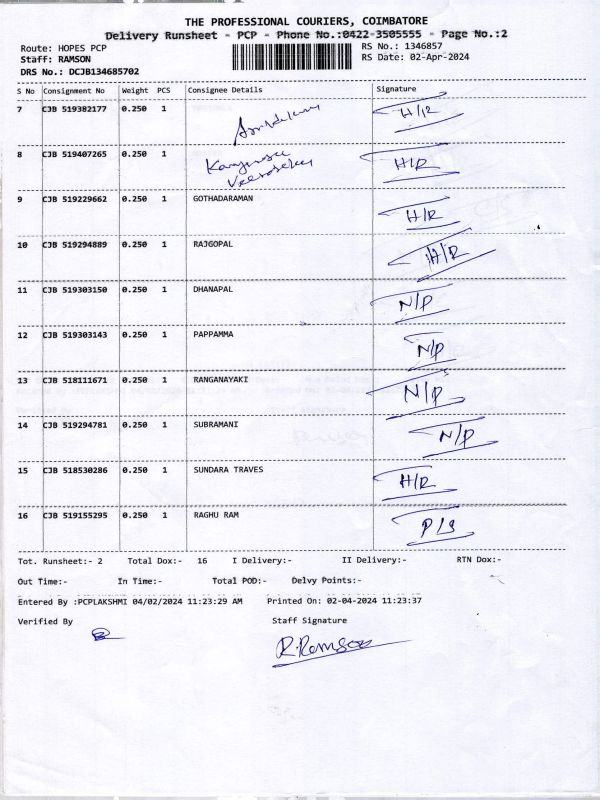 THE PROFESSIONAL COURIERS, COIMBATORE
Delivery Runsheet - PCP - Phone No.:0422-3505555 - Page No.:2
Route: HOPES PCP RS No.: 1346857
Staff: RAMSON RS Date: 02-Apr-2024
DRS No.: DCJB134685702
S No Consignment No Weight PCS Consignee Details Signature
7 CJB 519382177 0.250 1 H/R
8 CJB 519407265 0.250 1 H/R
9 CJB 519229662 0.250 1 GOTHADARAMAN H/R
10 CJB 519294889 0.250 1 RAJGOPAL H/R
11 CJB 519303150 0.250 1 DHANAPAL N/P
12 CJB 519303143 0.250 1 PAPPAMMA N/P
13 CJB 518111671 0.250 1 RANGANAYAKI N/P
14 CJB 519294781 0.250 1 SUBRAMANI N/P
15 CJB 518530286 0.250 1 SUNDARA TRAVES H/R
16 CJB 519155295 0.250 1 RAGHU RAM P/S
Tot. Runsheet:- 2 Total Dox:- 16 I Delivery:- II Delivery:- RTN Dox:-
Out Time:- In Time:- Total POD:- Delvy Points:-
Entered By :PCPLAKSHMI 04/02/2024 11:23:29 AM Printed On: 02-04-2024 11:23:37
Verified By Staff Signature
R.Ramson